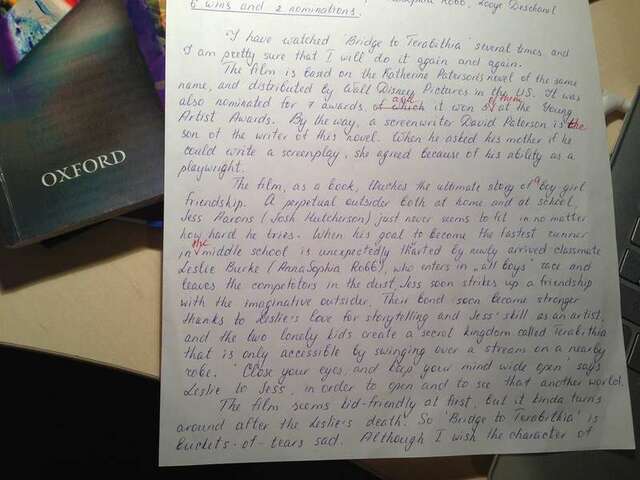 Robb, Zooye Deschanel
6 wins and 2 nominations.
"I have watched 'Bridge to Terabithia' several times and
I am pretty sure that I will do it again and again.
The film is based on the Katherine Paterson's novel of the same
name, and distributed by Wall Disney Pictures in the US. It was
also nominated for 7 awards of which and it won 5 of them at the Young
Artist Awards. By the way, a screenwriter David Paterson is the
son of the writer of this novel. When he asked his mother if he
could write a screenplay, she agreed because of his ability as a
playwright.
The film, as a book, teaches the ultimate story of a boy girl
friendship. A perpetual outsider both at home and at school,
Jess Aarons (Josh Hutcherson) just never seems to fit in no matter
how hard he tries. When his goal to become the fastest runner
in the middle school is unexpectedly tharted by newly arrived classmate
Leslie Burke (AnnaSophia Robb), who enters in "all boys" race and
leaves the competotors in the dust, Jess soon strikes up a friendship
with the imaginative outsider. Their bond soon became stronger
thanks to Leslie's love for storytelling and Jess' skill as an artist,
and the two lonely kids create a secret kingdom called Terabithia
that is only accessible by swinging over a stream on a nearby
robe. 'Close your eyes, and keep your mind wide open' says
Leslie to Jess, in order to open and to see that another world.
The film seems kid-friendly at first, but it kinda turns
around after the Leslie's death. So 'Bridge to Terabithia' is
buckets-of-tears sad. Although I wish the character of
OXFORD